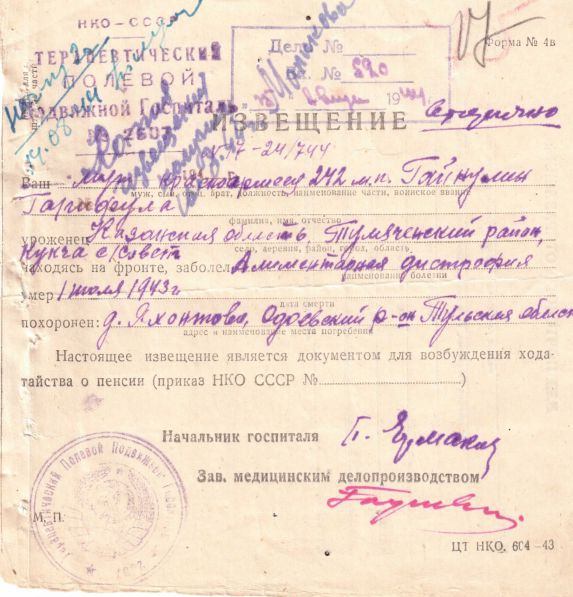 НКО-СССР
ТЕРАПЕВТИЧЕСКИЙ
ПОЛЕВОЙ
ПОДВИЖНОЙ ГОСПИТАЛЬ
№ 2607
Дело №
Вх. № 520
194
Форма № 4в
14.08.44
ИЗВЕЩЕНИЕ
Вторично
Ваш муж красноармеец 242 м.п. Гайнулин
муж, сын, отец, брат, должность, наименование части, воинское звание
Гарифула
фамилия, имя, отчество
уроженец Казанская область, район,
село, деревня, район, город, область
Кукча с/совет
находясь на фронте, заболел Алиментарная дистрофия
наименование болезни
умер 1 июля 1943 г
дата смерти
похоронен: д. Яхонтово, Одоевский р-он Тульская област
адрес и наименование места погребения
Настоящее извещение является документом для возбуждения хода-
тайства о пенсии (приказ НКО СССР № )
Начальник госпиталя
Зав. медицинским делопроизводством
М. П.
Терапевтический Полевой Подвижной
2607
ЦТ НКО. 604-43